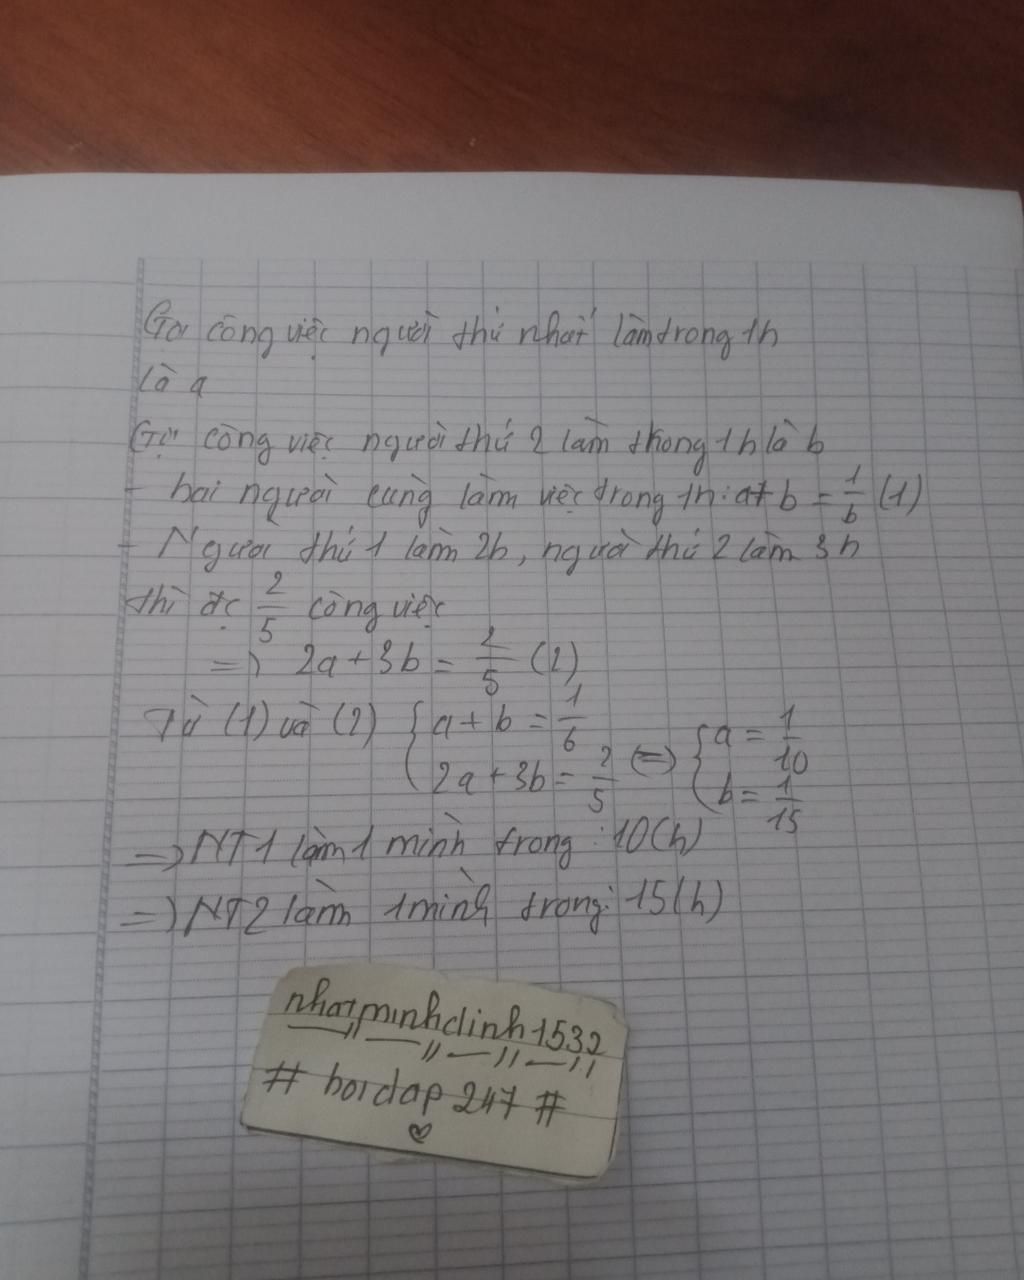 Gọi công việc người thứ nhất làm trong 1h
là a
Gọi công việc người thứ 2 làm trong 1h là b
- hai người cùng làm việc trong 1h: a+b = 1/6 (1)
- Người thứ 1 làm 2h, người thứ 2 làm 3h
thì đc 2/5 công việc
=> 2a+3b = 2/5 (2)
Từ (1) và (2) { a+b = 1/6 (=) { a = 1/10
2a+3b = 2/5 b = 1/15
=> NT1 làm 1 mình trong: 10(h)
=> NT2 làm 1 mình trong: 15(h)
nhatminhdinh1532
# hoidap 247 #